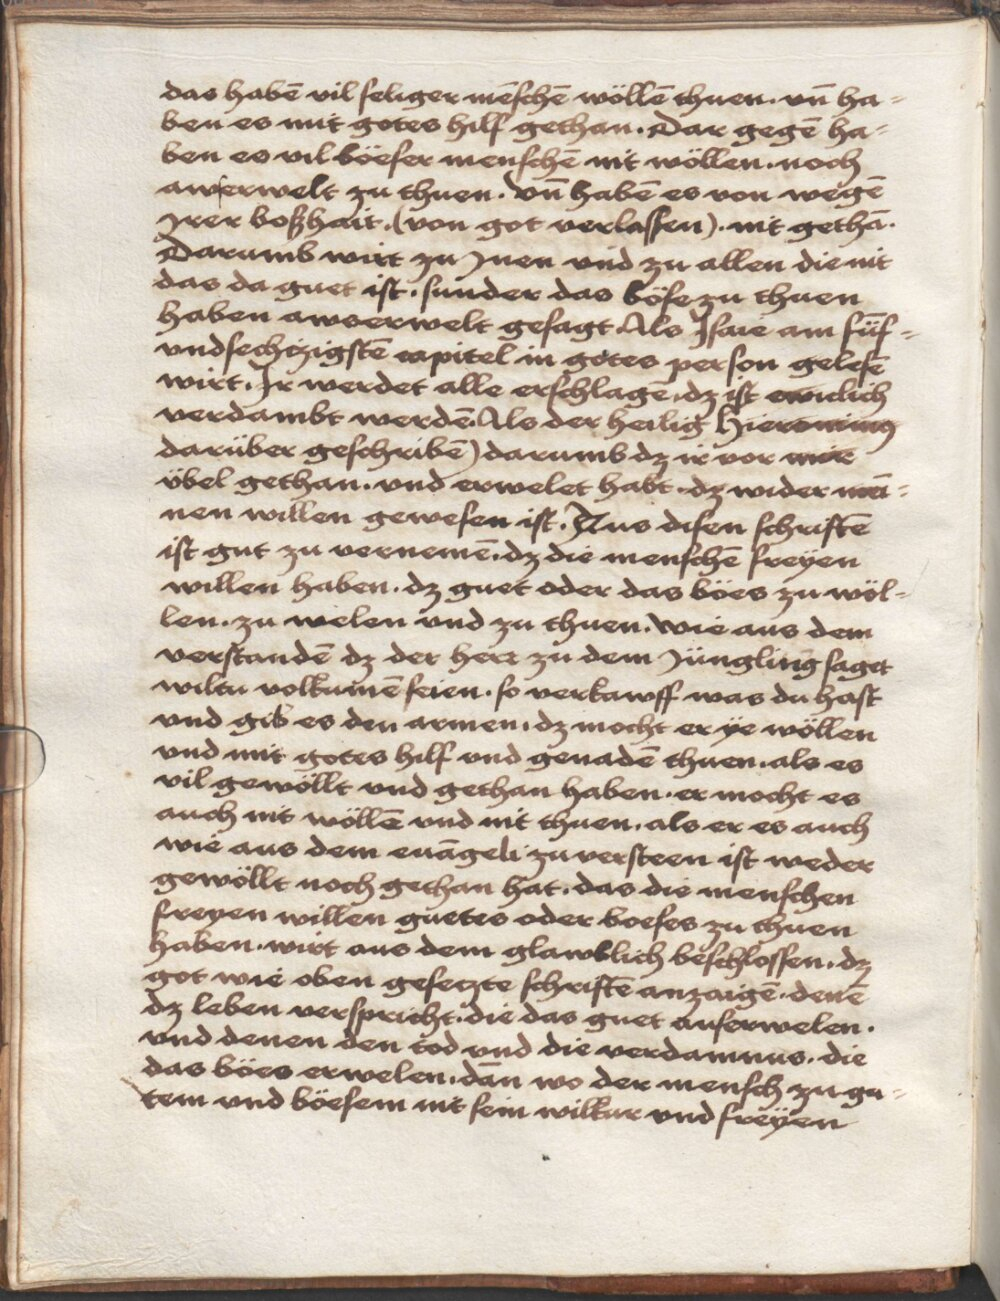 das habē vil seliger mēschē wöllē thuen. vn̄ ha-
ben es mit gotes hilf gethan. Dar gegē ha-
ben es vil böeser menschē nit wöllen. noch
awserwelt zu thuen. Vn̄ habē es von wegē
Jrer boßhait. (von got verlassen). nit gethā.
Darumb wirt zu Jnen vnd zu allen die nit
das da guet ist. sunder das böse zu thuen
haben awserwelt gesagt. Als Jsaie am fūf-
vndsechtzigstē capitel in gotes person gelesē
wirt. Jr werdet alle erschlagē. dz ist ewiclich
verdambt werdē. Als der heilig Hieronimus
darüber geschribē) darumb dz ir vor mir
übel gethan. vnd erwelet habt. dz wider mei-
nen willen gewesen ist. Aus disen schriftē
ist gut zu vernemē. dz die menschē freÿen
willen haben. dz guet oder das böes zu wöl-
len. zu welen vnd zu thuen. wie aus dem
verstandē dz der herr zu dem Jüngling saget
wiltu volkumē seien. so verkawff was du hast
vnd gib es den armen. dz mocht er ye wöllen
vnd mit gotes hilf vnd genadē thuen. als es
vil gewöllt vnd gethan haben. er mocht es
auch nit wöllē vnd nit thuen. als er es auch
wie aus dem euāgeli zu versteen ist weder
gewöllt noch gethan hat. das die menschen
freyen willen guetes oder boeses zu thuen
haben. wirt aus dem glawblich beschlossen. dz
got wie oben gesetzte schriftē anzaigē. denē
dz leben verspricht. die das guet auserwelen.
vnd denen den tod vnd die verdamnus. die
das böes erwelen. dān wo der mensch zu gu-
tem vnd böesem nit sein wilkur vnd freÿen